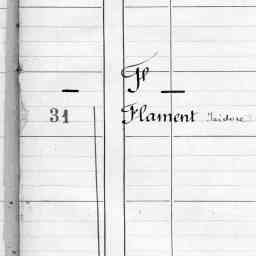 Fl
31 Flament Isidore